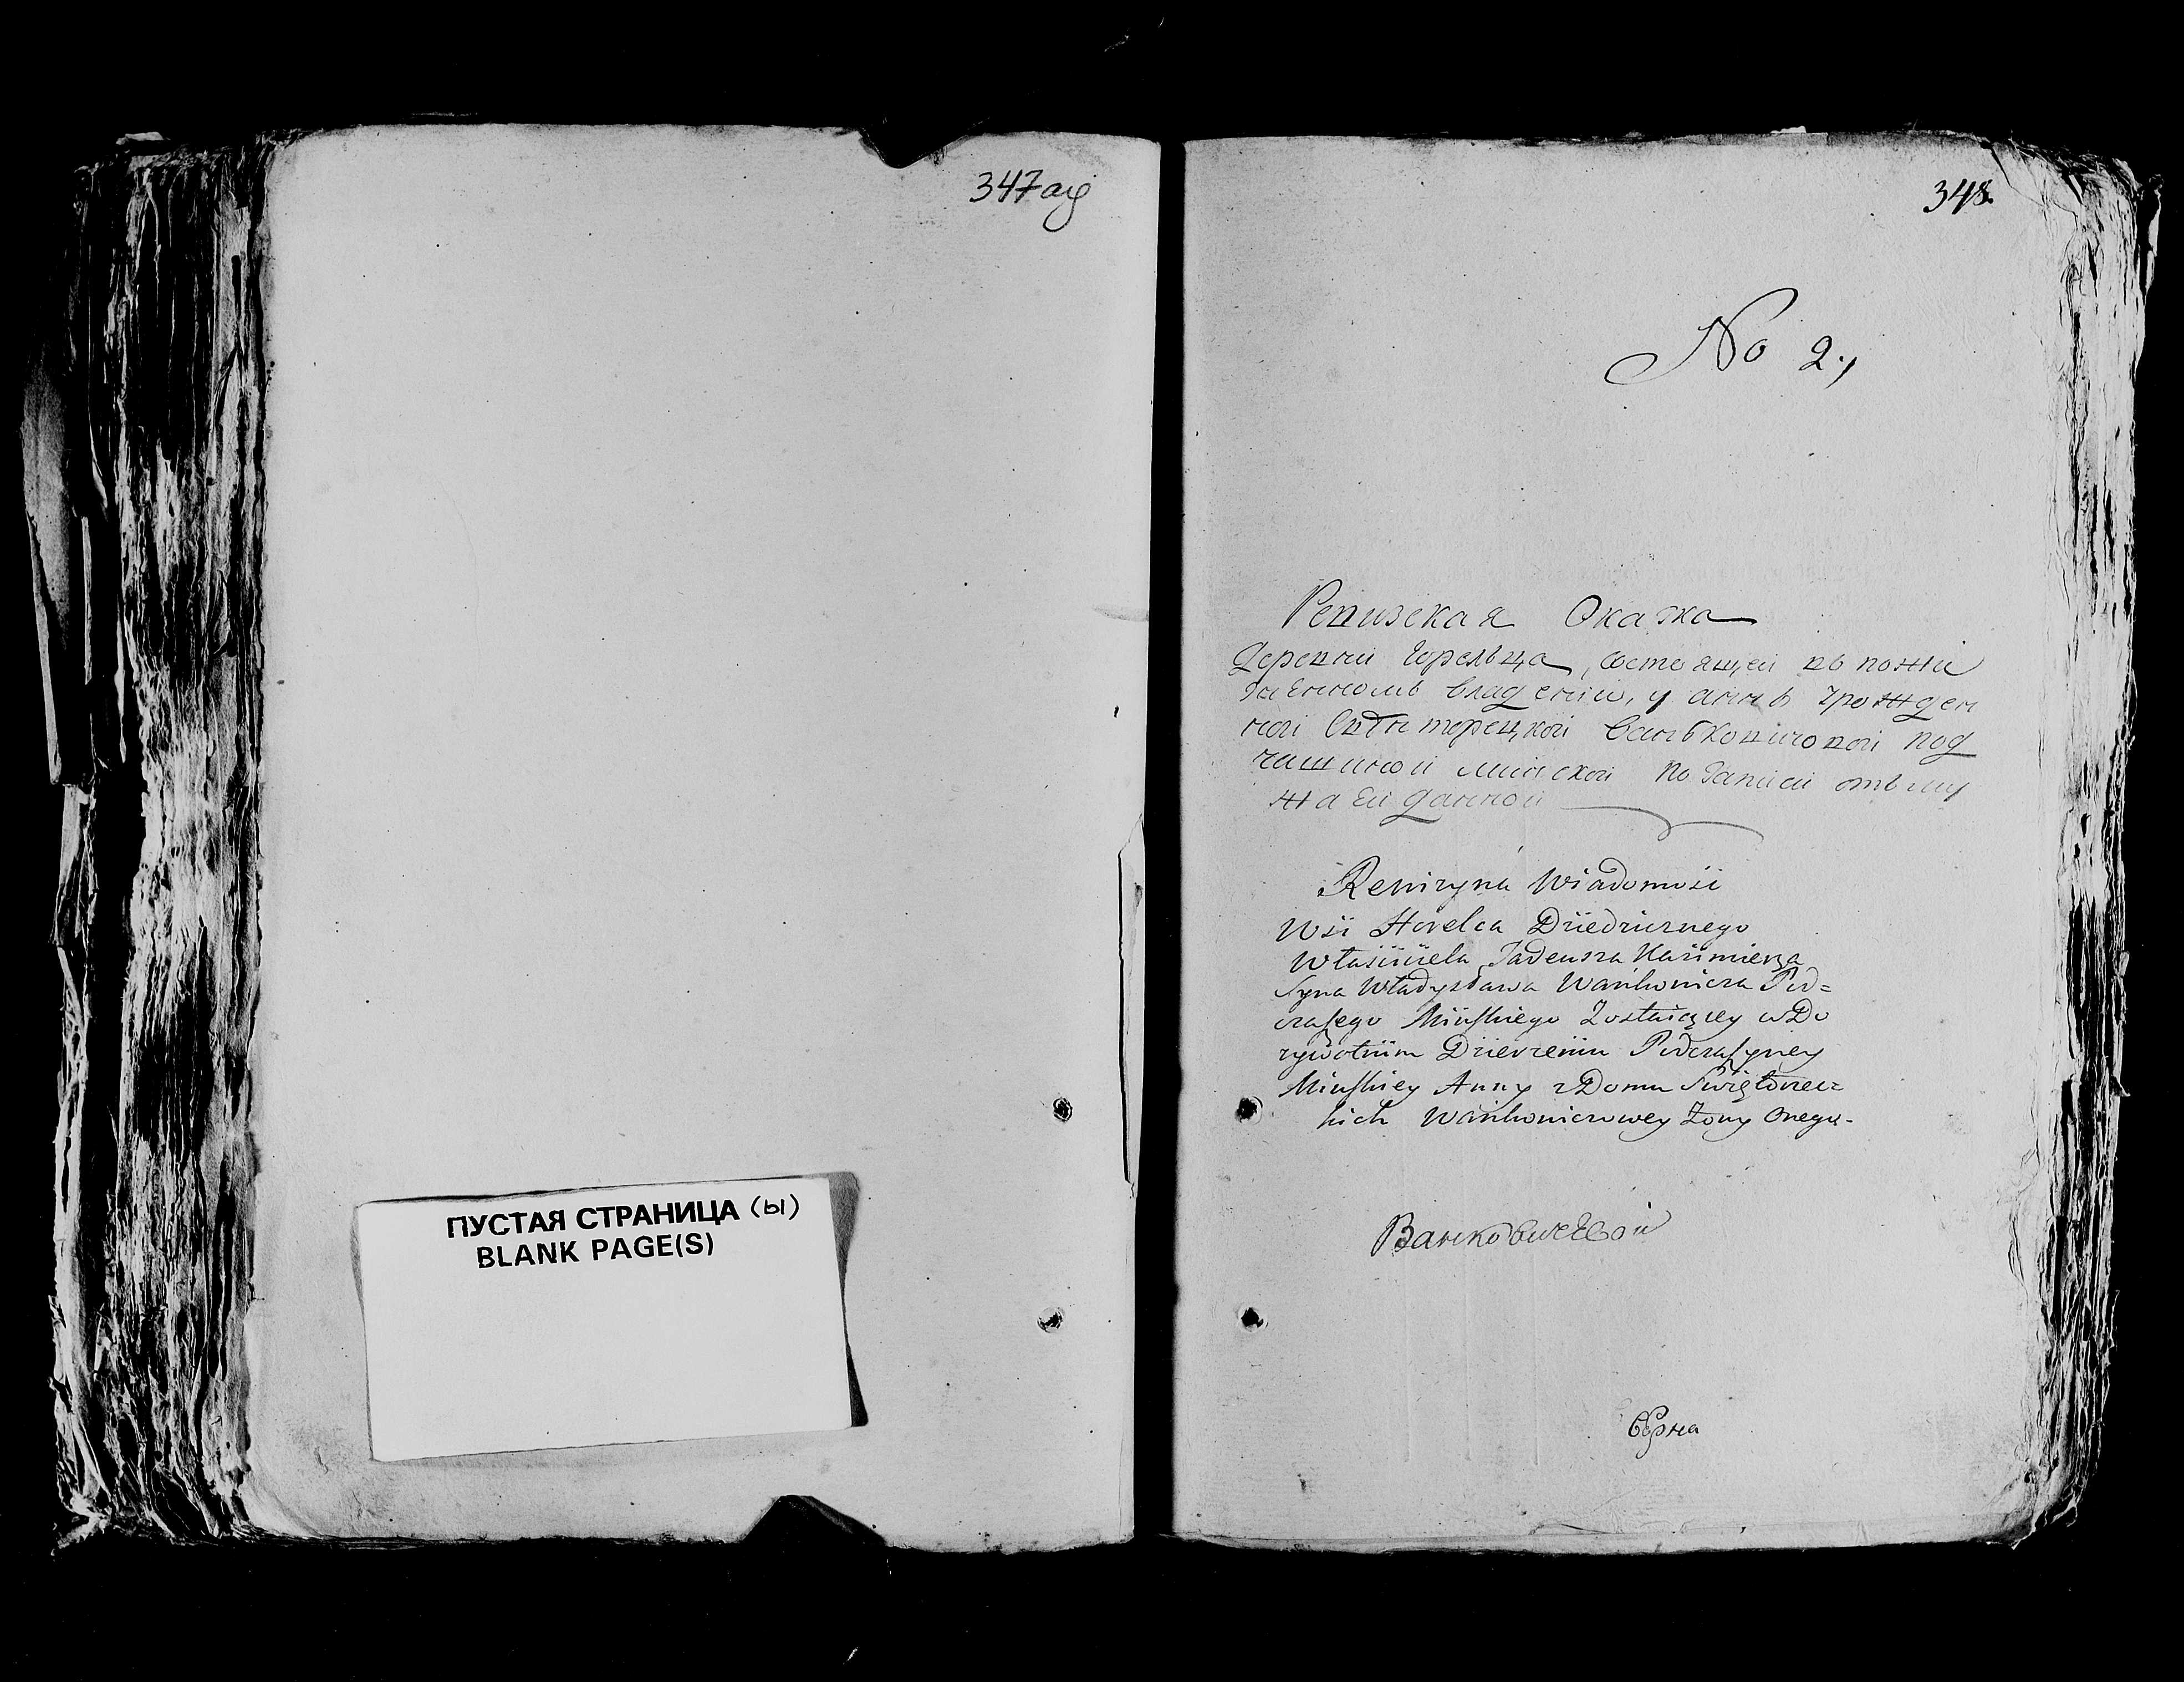 347 об
ПУСТАЯ СТРАНИЦА (ы)
BLANK PAGE(S)
348.
No 2,
Ревизская Скажа
Деревни Горельца, состоящей въ пожи
зненномъ владении, у аннъ урожден
ной Свентторецкой Ваньковичовой под
чашиной минской по записи отъ му
жа Ей данной
Rewizyna Wiadomość
Wsi Horelca Dziedzicznego
Właściciela Tadeusza Kazimierza
Syna Władysława Wańkowicza Pod=
czaszego Mińskiego Zostaiącey w Do
żywotnim Dzierżeniu Podczaszyney
Mińskiey Anny z Domu Swiętorzec=
kich Wańkowiczowey Żony Onego.
Ванковичевой